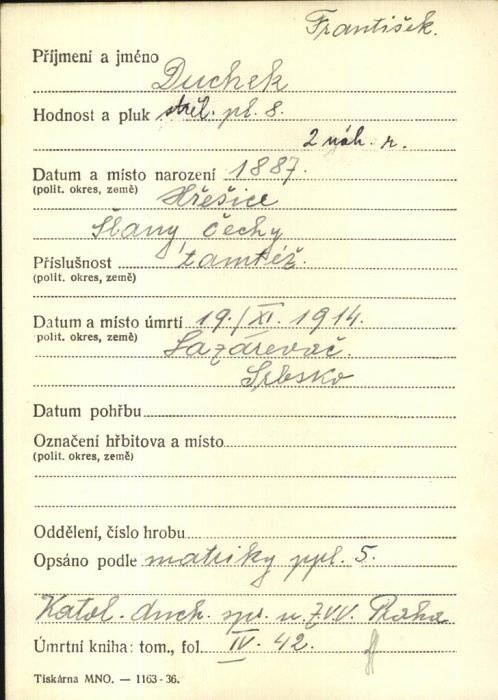 František.
Příjmení a jméno
Duchek
Hodnost a pluk střel. pl. 8.
2 náh. r.
Datum a místo narození 1887.
(polit. okres, země) Hřešice
Slaný, Čechy
Příslušnost tamtéž.
(polit. okres, země)
Datum a místo úmrtí 19./XI. 1914.
polit. okres, země) Lazarevač.
Srbsko
Datum pohřbu
Označení hřbitova a místo
(polit. okres, země)
Oddělení, číslo hrobu
Opsáno podle matriky ppl. 5.
Katol. duch. spr. u Z.V.V. Praha
Úmrtní kniha: tom., fol. IV. 42.
Tiskárna MNO. — 1163-36.